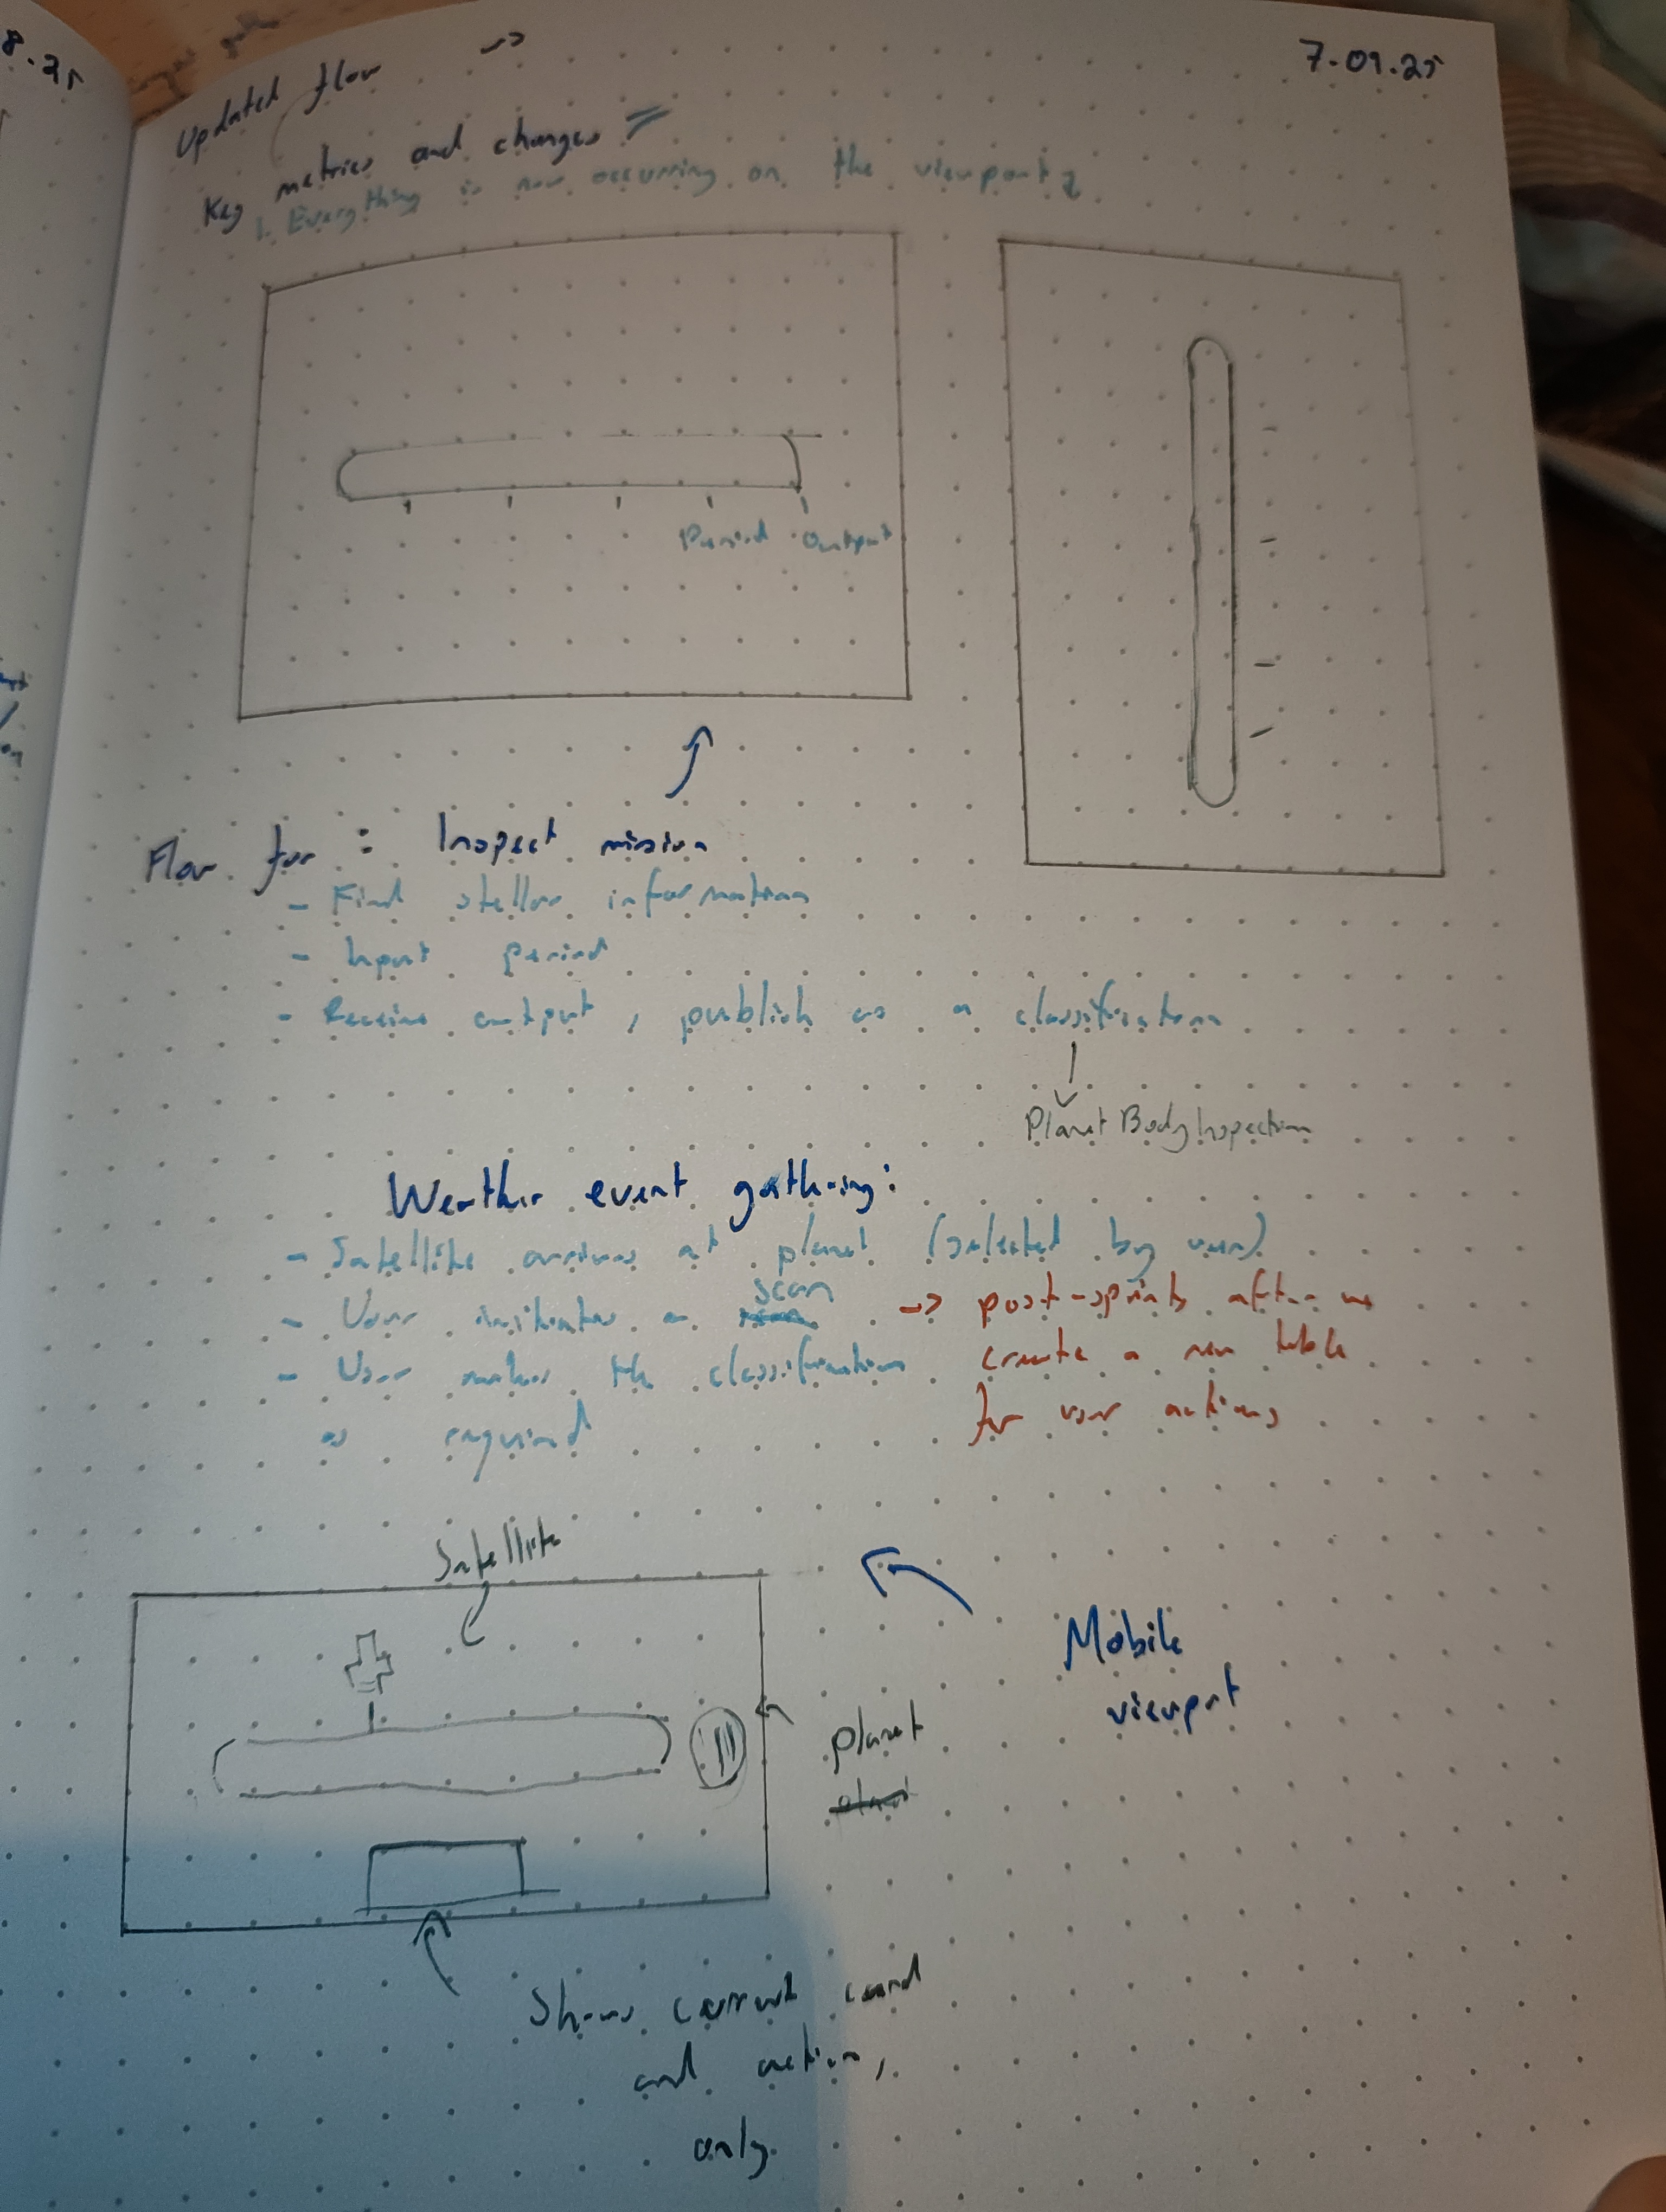 7.09.25
Updated flow ->
Key metrics and changes =
1. Everything is now occurring on the viewport
Period Output
Flow for : Inspect mission
- Find stellar information
- Input period
- Receive output, publish as a classification
Planet Body Inspection
Weather event gathering:
- Satellite arrives at planet (selected by user)
- User initiates a scan -> post-sprints after we
- User makes the classification create a new table
as required for user actions
Satellite
Mobile
viewport
planet
Shows current card
and action,
only.